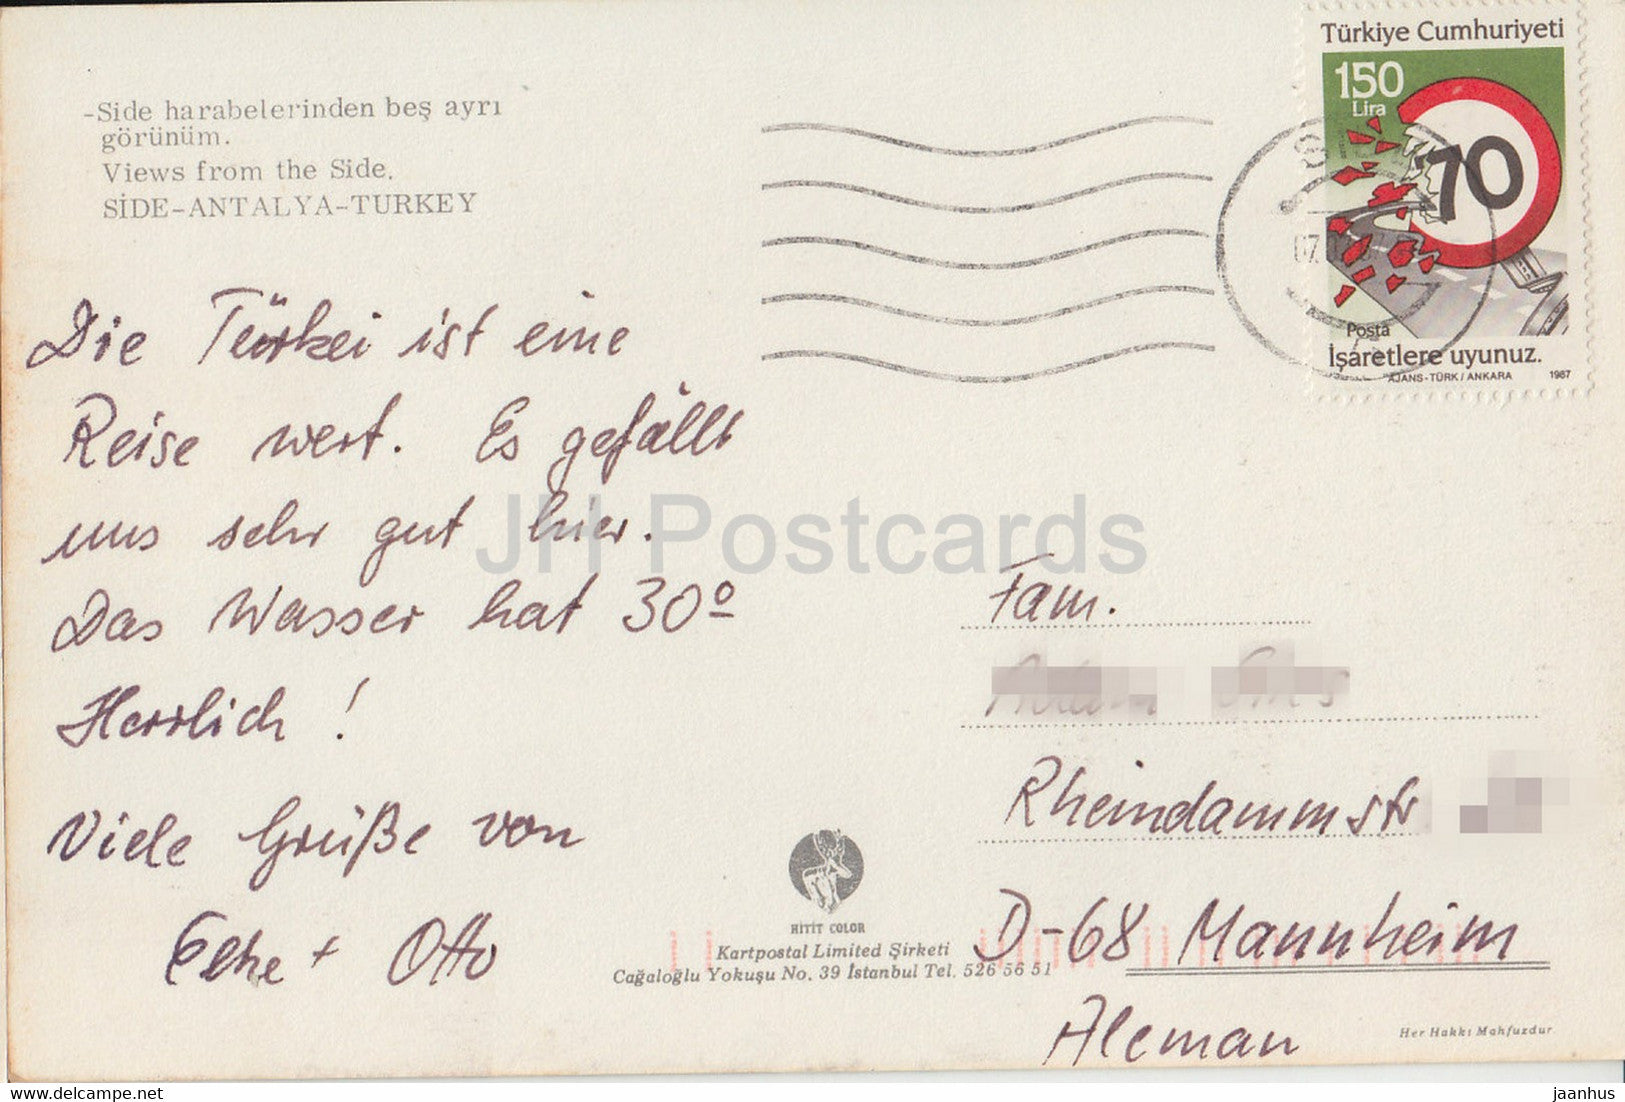 -Side harabelerinden beş ayrı
görünüm.
Views from the Side.
SİDE-ANTALYA-TURKEY
Türkiye Cumhuriyeti
150
Lira
70
Posta
İşaretlere uyunuz.
AJANS-TÜRK / ANKARA 1987
Die Türkei ist eine
Reise wert. Es gefällt
uns sehr gut hier.
Das Wasser hat 30º
Herrlich!
Viele Grüße von
+ Otto
JH Postcards
Fam.
Rheindammstr
D-68 Mannheim
Aleman
HİTİT COLOR
Kartpostal Limited Şirketi
Cağaloğlu Yokuşu No. 39 İstanbul Tel. 526 56 51
Her Hakkı Mahfuzdur
www.delcampe.net
jaanhus